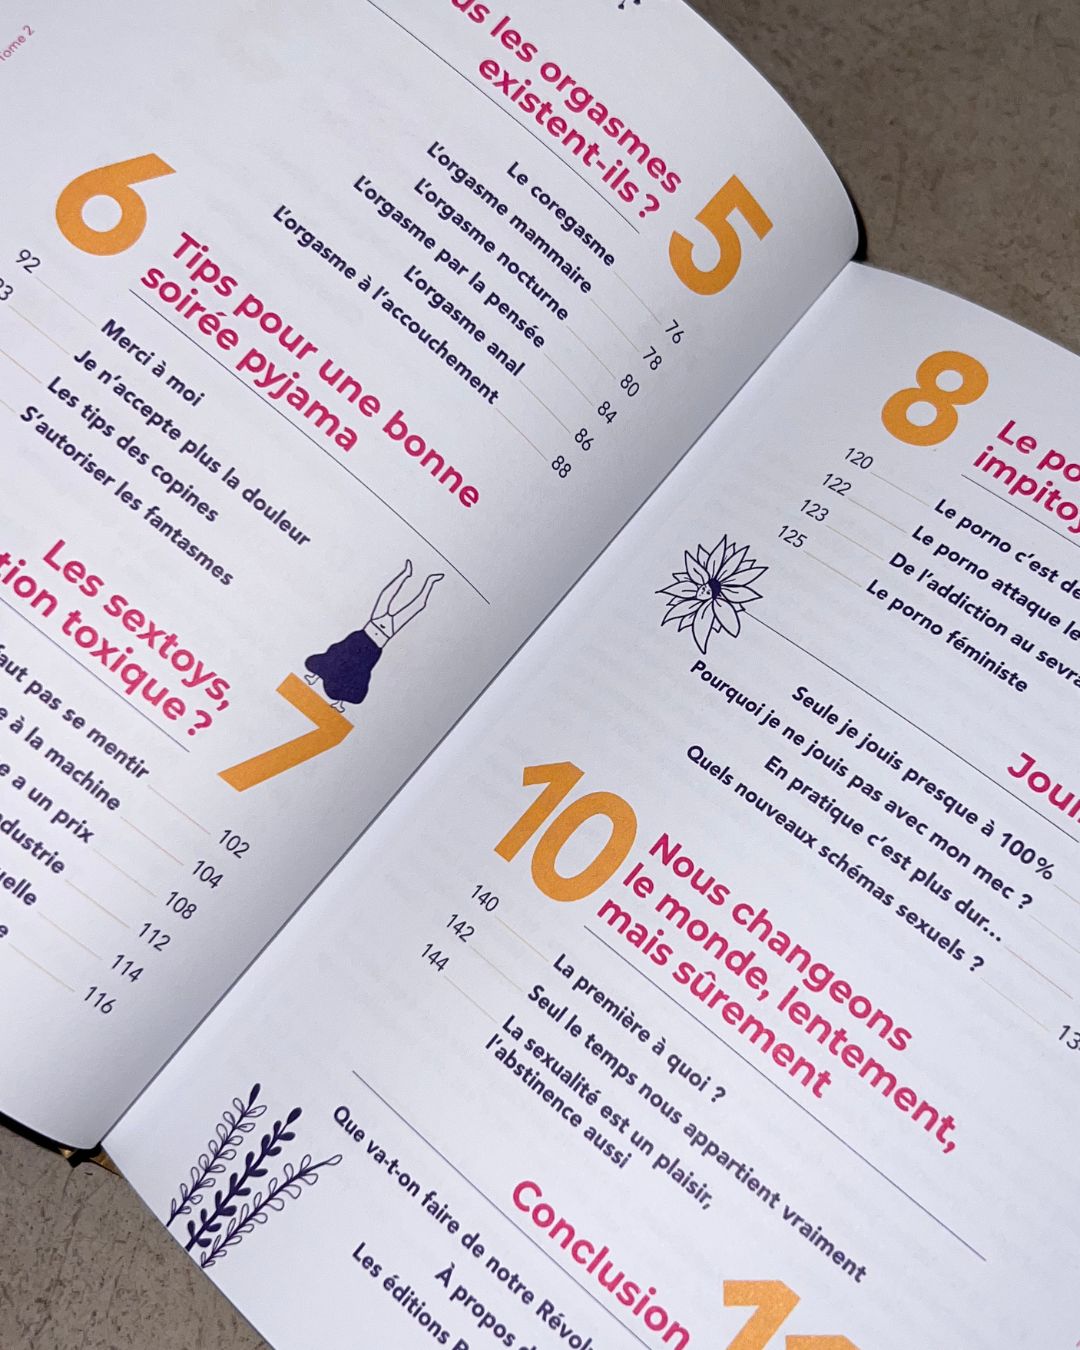 Tome 2
les orgasmes
existent-ils ?
5
Le coregasme
76
L'orgasme mammaire
78
L'orgasme nocturne
80
L'orgasme par la pensée
84
L'orgasme anal
86
L'orgasme à l'accouchement
88
6
Tips pour une bonne
soirée pyjama
92
Merci à moi
Je n'accepte plus la douleur
Les tips des copines
S'autoriser les fantasmes
Les sextoys,
toxique ?
7
pas se mentir
102
à la machine
104
a un prix
108
112
114
116
8
Le
120
Le porno c'est
122
Le porno attaque
123
De l'addiction au
125
Le porno féministe
Seule je jouis presque à 100%
Pourquoi je ne jouis pas avec mon mec ?
En pratique c'est plus dur...
Quels nouveaux schémas sexuels ?
10
Nous changeons
le monde, lentement,
mais sûrement
140
La première à quoi ?
142
Seul le temps nous appartient vraiment
144
La sexualité est un plaisir,
l'abstinence aussi
Conclusion
Que va-t-on faire de notre
À propos
Les éditions